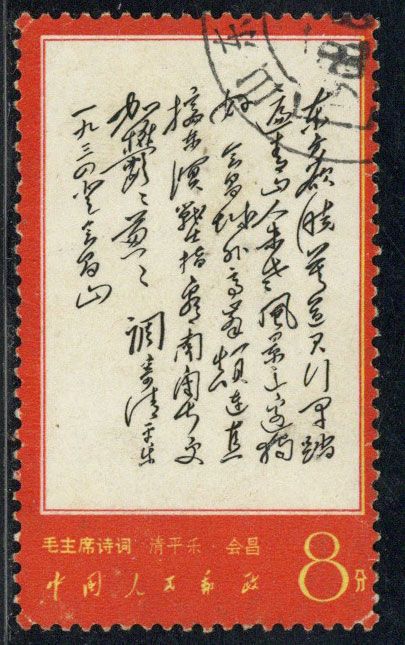 东方欲曉莫道君行早踏
遍青山人未老風景这边獨
好 会昌城外高峯顛連直
接东溟戰士指看南粤更
加欝々葱々
調寄清平乐
一九三四登会昌山
毛主席诗词 清平乐·会昌
中国人民邮政
8分